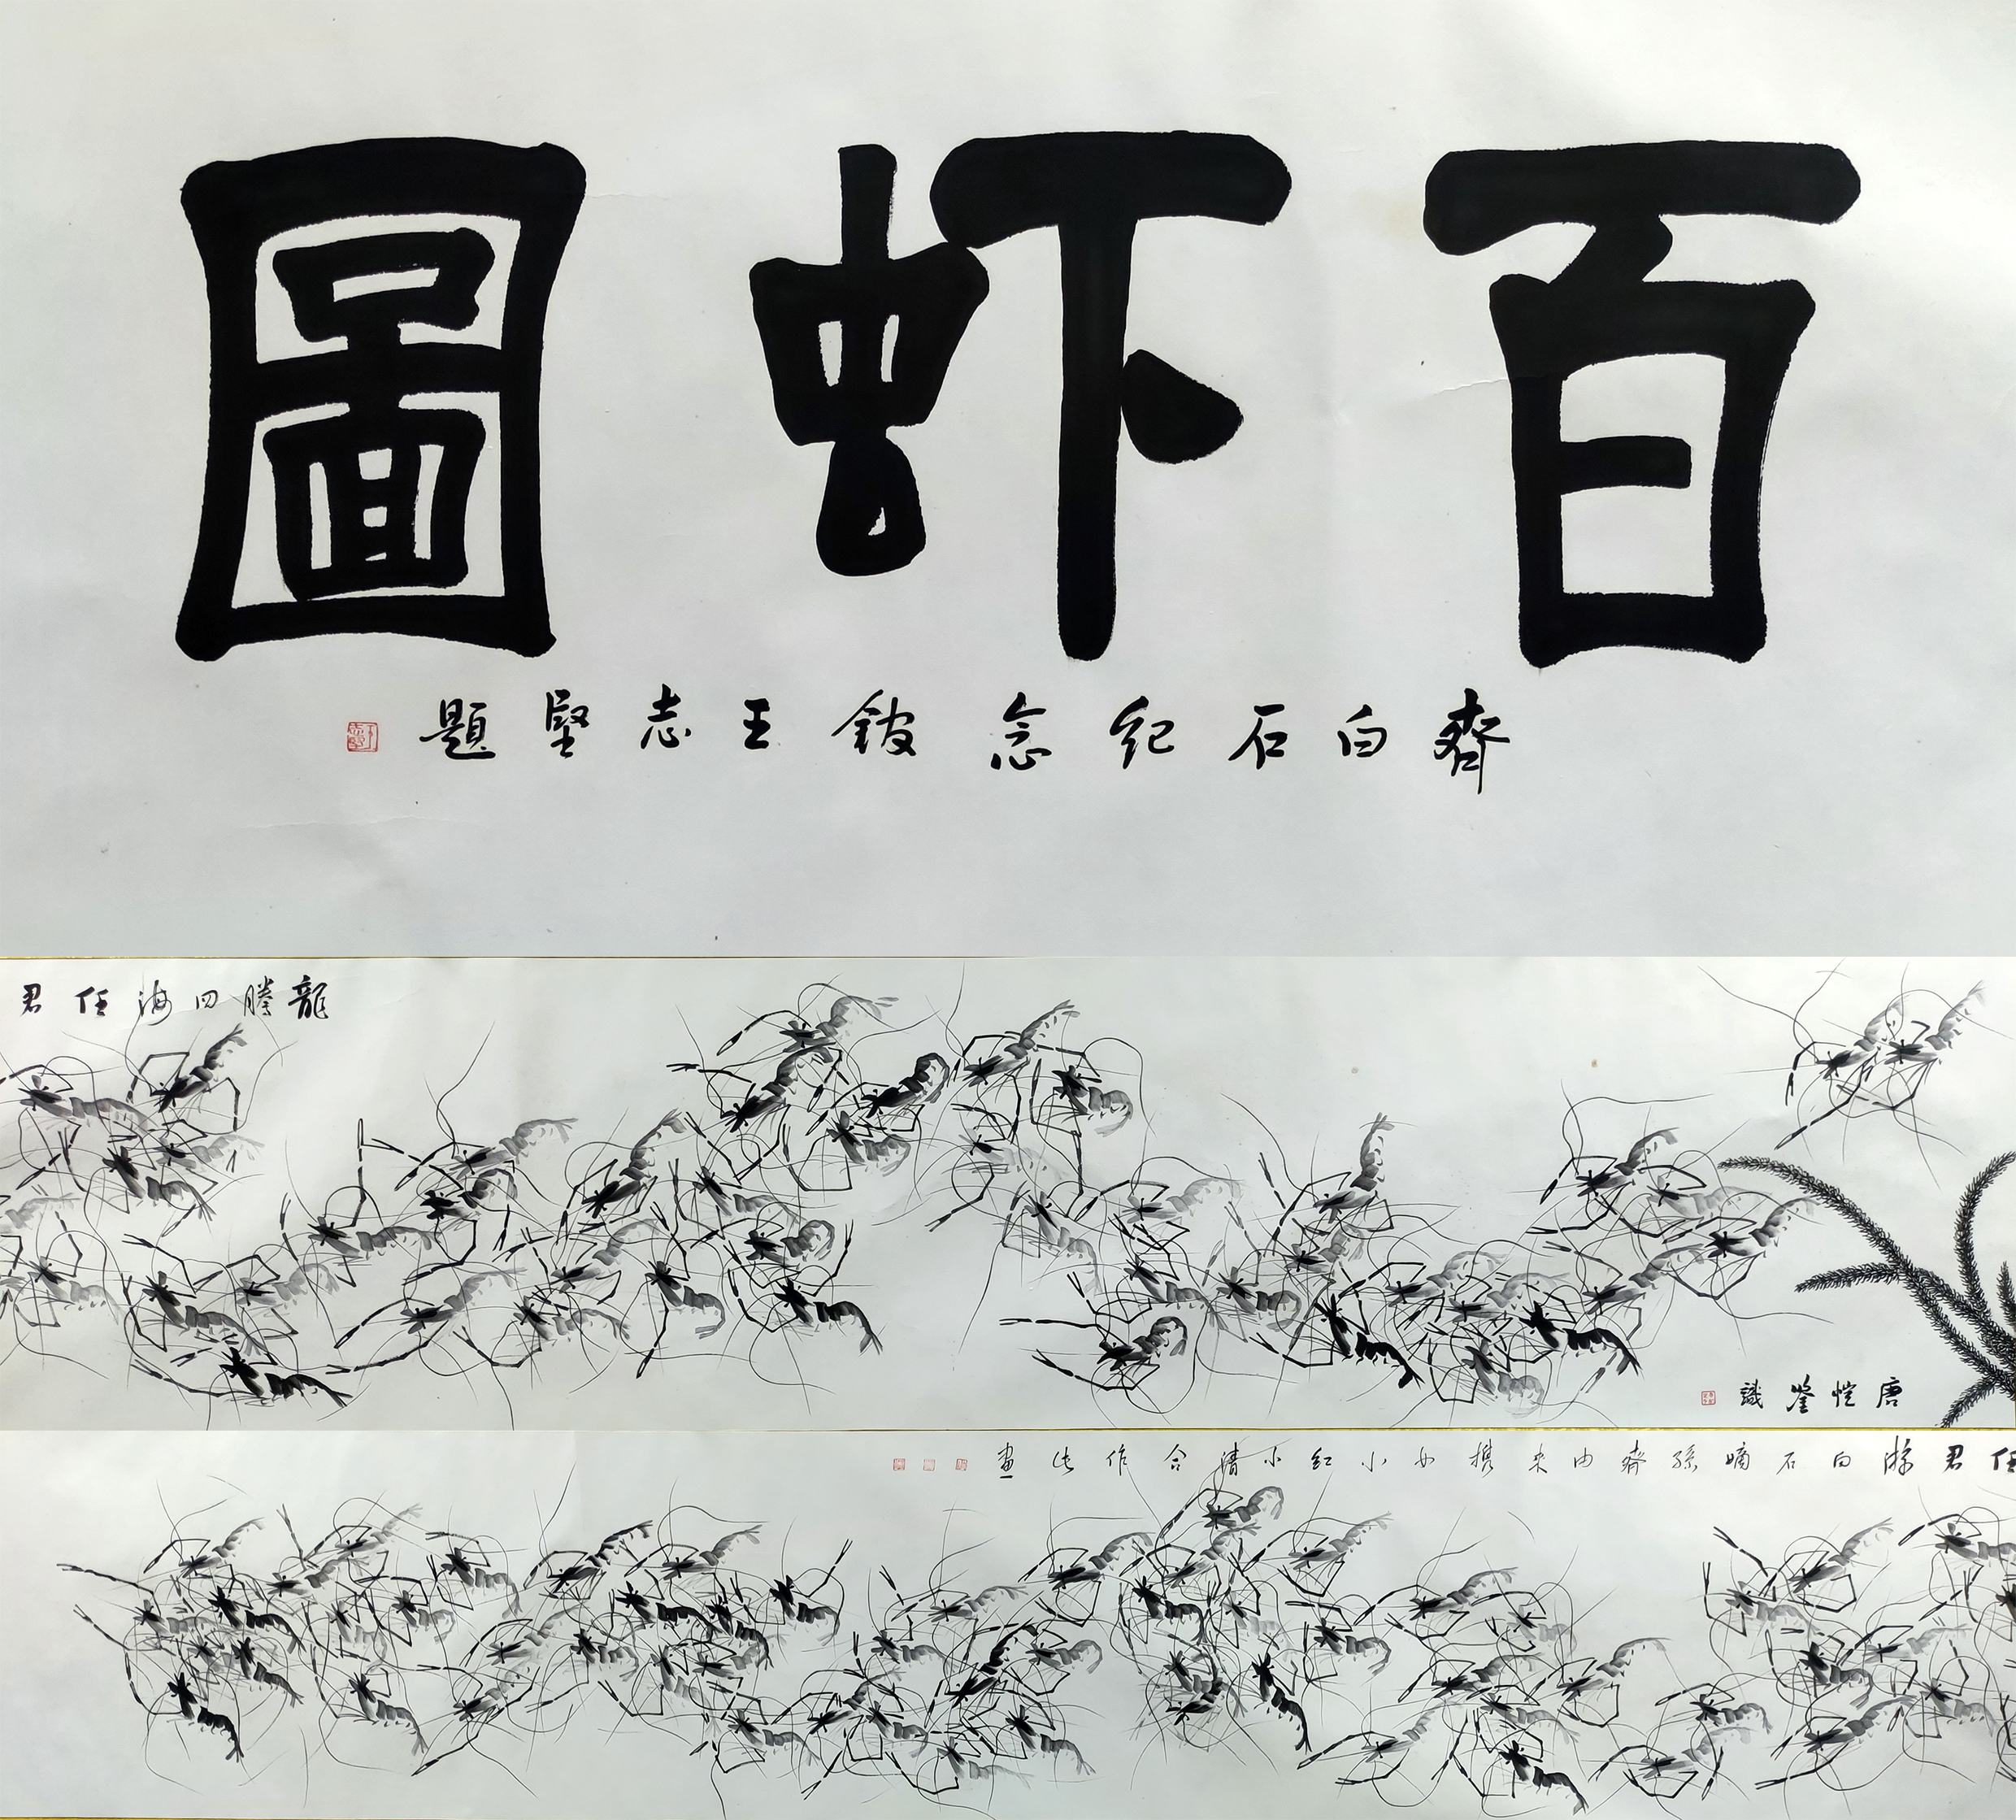 百虾圖
齊白石紀念館王志堅題
龍騰四海任君
唐愷識
任君游白石嫡孫齊由来携女小紅小清合作此畫